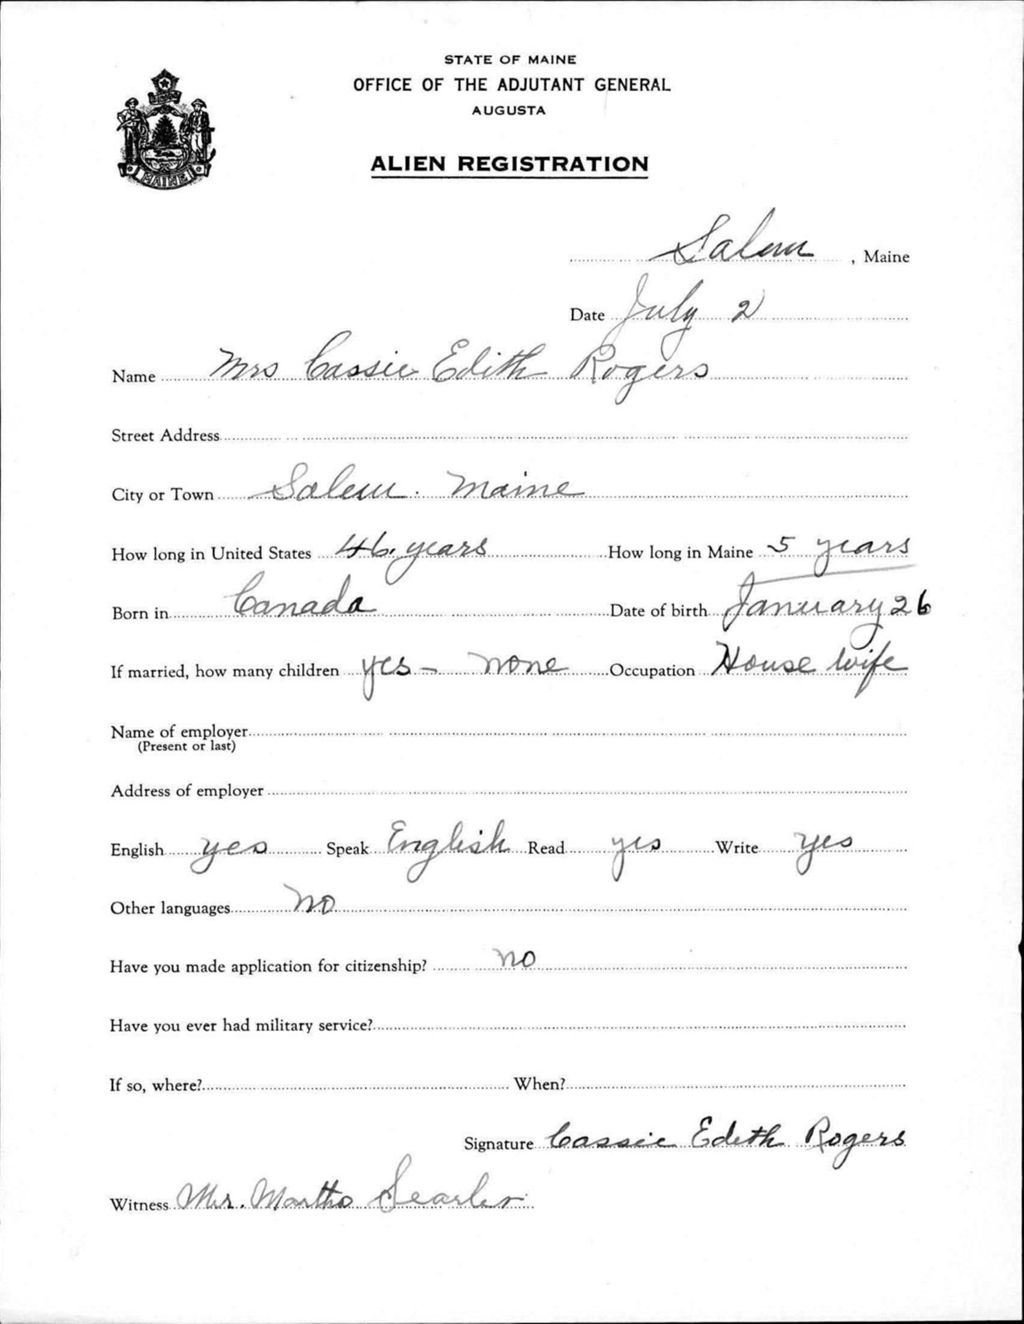 STATE OF MAINE
OFFICE OF THE ADJUTANT GENERAL
AUGUSTA
MAINE
ALIEN REGISTRATION
Salem, Maine
Date July 2
Name Mrs Cassie Edith Rogers
Street Address
City or Town Salem. Maine
How long in United States 46 years How long in Maine 5 years
Born in Canada Date of birth January 26
If married, how many children yes - none Occupation House wife
Name of employer
(Present or last)
Address of employer
English yes Speak English Read yes Write yes
Other languages No
Have you made application for citizenship? no
Have you ever had military service?
If so, where? When?
Signature Cassie Edith Rogers
Witness Martha Searles